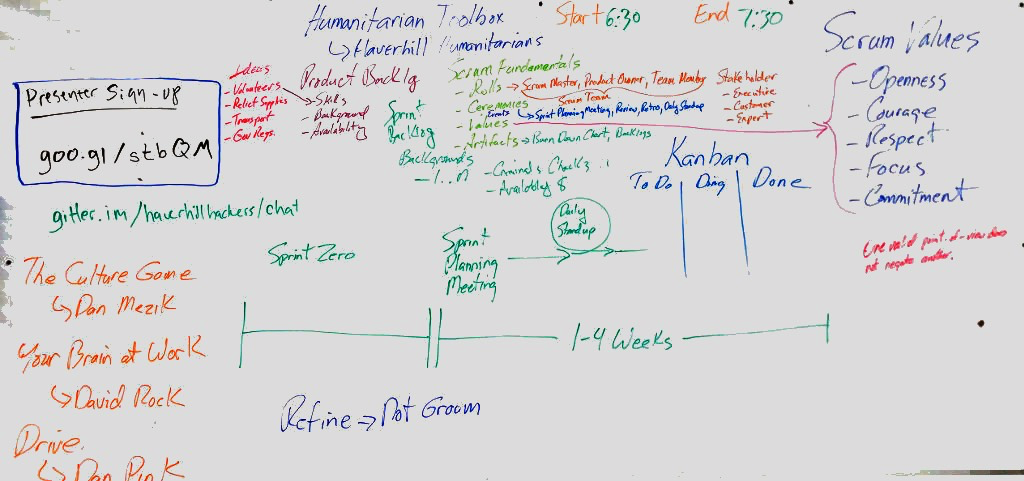 Humanitarian Toolbox
↳Haverhill Humanitarians
Start 6:30
End 7:30
Presenter Sign-up
goo.gl/stbQM
gitter.im/haverhillhackers/chat
Ideas
- Volunteers
- Relief Supplies
- Transport
- Gov Reps.
Product Backlog
- Skills
- Background
- Availability
Sprint
Backlog
Scrum Fundamentals
- Rolls → Scrum Master, Product Owner, Team Member
Scrum Team
- Ceremonies
Events ↳ Sprint Planning Meeting, Review, Retro, Daily Standup
- Values
- Artifacts → Burn Down Chart, Backlogs
Stakeholder
- Executive
- Customer
- Expert
Backgrounds
- 1..n
- Criminals Checks
- Availability $
Scrum Values
- Openness
- Courage
- Respect
- Focus
- Commitment
One valid point-of-view does
not negate another.
Kanban
To Do
Doing
Done
Sprint Zero
Sprint
Planning
Meeting
Daily
Standup
1-4 Weeks
The Culture Game
↳ Dan Mezik
Your Brain at Work
↳ David Rock
Drive
↳ Dan Pink
Refine → Not Groom